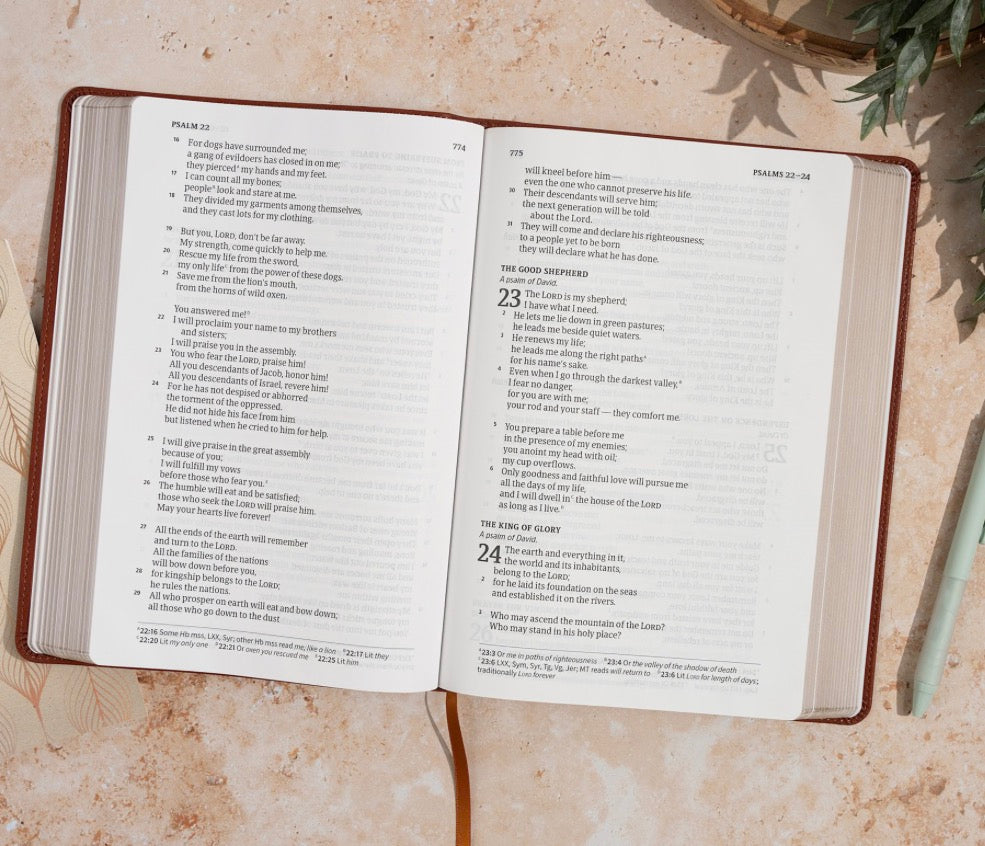 PSALM 22
774
16 For dogs have surrounded me;
a gang of evildoers has closed in on me;
they pierced^A my hands and my feet.
17 I can count all my bones;
people^B look and stare at me.
18 They divided my garments among themselves,
and they cast lots for my clothing.
19 But you, LORD, don't be far away.
My strength, come quickly to help me.
20 Rescue my life from the sword,
my only life^C from the power of these dogs.
21 Save me from the lion's mouth,
from the horns of wild oxen.
You answered me!^D
22 I will proclaim your name to my brothers
and sisters;
I will praise you in the assembly.
23 You who fear the LORD, praise him!
All you descendants of Jacob, honor him!
All you descendants of Israel, revere him!
24 For he has not despised or abhorred
the torment of the oppressed.
He did not hide his face from him
but listened when he cried to him for help.
25 I will give praise in the great assembly
because of you;
I will fulfill my vows
before those who fear you.^E
26 The humble will eat and be satisfied;
those who seek the LORD will praise him.
May your hearts live forever!
27 All the ends of the earth will remember
and turn to the LORD.
All the families of the nations
will bow down before you,
28 for kingship belongs to the LORD;
he rules the nations.
29 All who prosper on earth will eat and bow down;
all those who go down to the dust
^A22:16 Some Hb mss, LXX, Syr; other Hb mss read me; like a lion ^B22:17 Lit they
^C22:20 Lit my only one ^D22:21 Or oxen you rescued me ^E22:25 Lit him
775
PSALMS 22–24
will kneel before him —
even the one who cannot preserve his life.
30 Their descendants will serve him;
the next generation will be told
about the Lord.
31 They will come and declare his righteousness;
to a people yet to be born
they will declare what he has done.
THE GOOD SHEPHERD
A psalm of David.
23 The LORD is my shepherd;
I have what I need.
2 He lets me lie down in green pastures;
he leads me beside quiet waters.
3 He renews my life;
he leads me along the right paths^A
for his name's sake.
4 Even when I go through the darkest valley,^B
I fear no danger,
for you are with me;
your rod and your staff — they comfort me.
5 You prepare a table before me
in the presence of my enemies;
you anoint my head with oil;
my cup overflows.
6 Only goodness and faithful love will pursue me
all the days of my life,
and I will dwell in^C the house of the LORD
as long as I live.^D
THE KING OF GLORY
A psalm of David.
24 The earth and everything in it,
the world and its inhabitants,
belong to the LORD;
2 for he laid its foundation on the seas
and established it on the rivers.
3 Who may ascend the mountain of the LORD?
Who may stand in his holy place?
^A23:3 Or me in paths of righteousness ^B23:4 Or the valley of the shadow of death
^C23:6 LXX, Sym, Syr, Tg, Vg, Jer; MT reads will return to ^D23:6 Lit LORD for length of days;
traditionally LORD forever